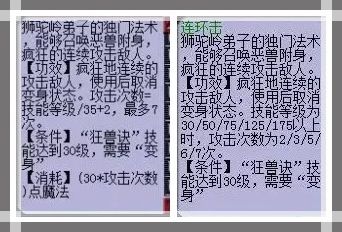 狮驼岭弟子的独门法术
，能够召唤恶兽附身，
疯狂的连续攻击敌人。
【功效】疯狂地连续的
攻击敌人，使用后取消
变身状态。攻击次数=
技能等级/35+2，最多7
次。
【条件】“狂兽诀”技
能达到30级，需要“变
身”
【消耗】(30*攻击次数
)点魔法
连环击
狮驼岭弟子的独门法术
，能够召唤恶兽附身，
疯狂的连续攻击敌人。
【功效】疯狂地连续的
攻击敌人，使用后取消
变身状态。技能等级为
30/50/75/125/175以上
时，攻击次数为2/3/5/
6/7次。
【条件】“狂兽诀”技
能达到30级，需要“变
身”